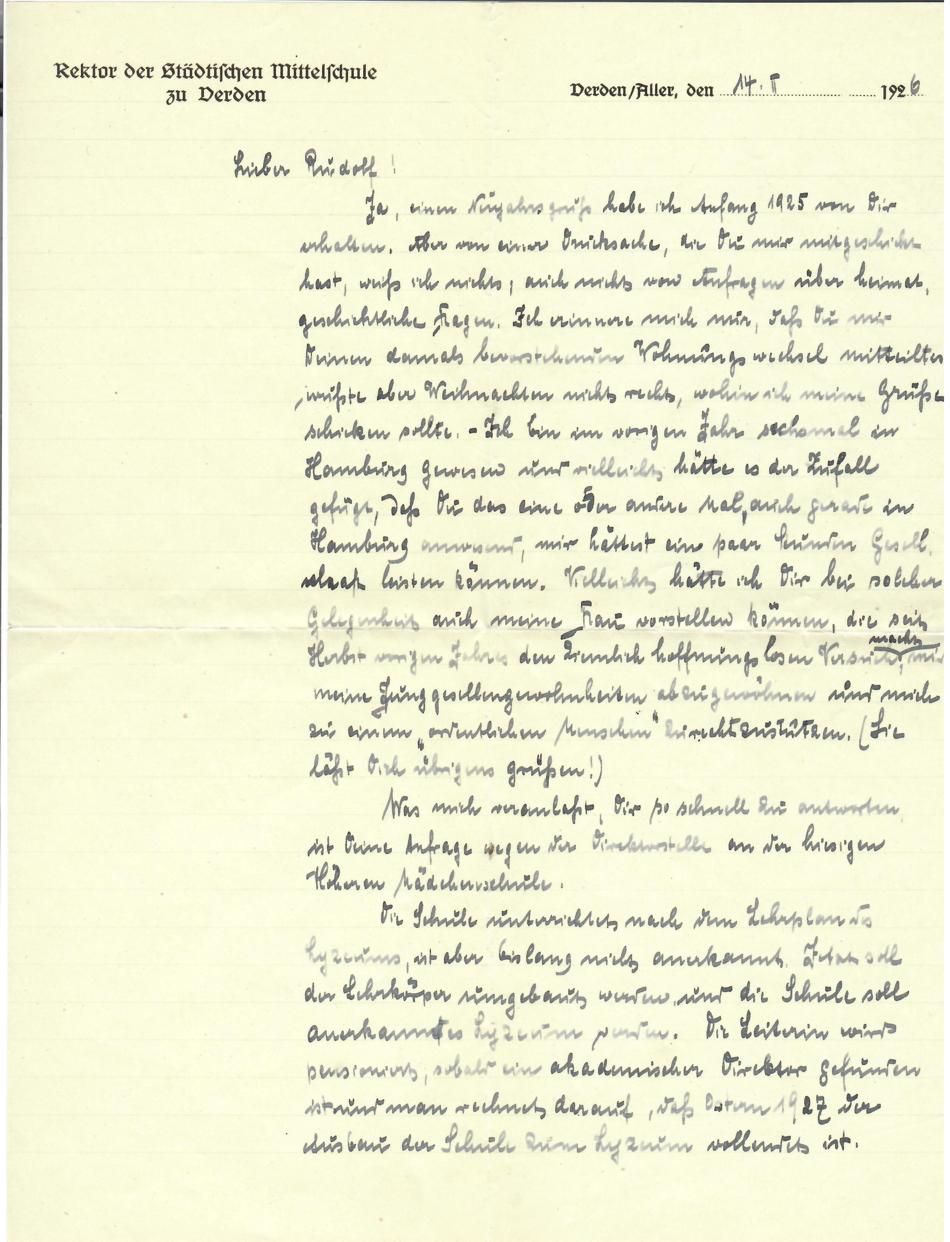 Rektor der Städtischen Mittelschule
zu Verden
Verden/Aller, den 14. I 1926
Lieber Rudolf!
Ja, einen Neujahrsgruß habe ich Anfang 1925 von Dir
erhalten. Aber von einer Drucksache, die Du mir mitgeschickt
hast, weiß ich nichts; auch nichts von Anfragen über heimat-
geschichtliche Fragen. Ich erinnere mich nur, daß Du mir
Deinen damals bevorstehenden Wohnungswechsel mitteiltest,
wußte aber Weihnachten nicht recht, wohin ich meine Grüße
schicken sollte. - Ich bin im vorigen Jahr sechsmal in
Hamburg gewesen und vielleicht hätte es der Zufall
gefügt, daß Du das eine oder andere Mal, auch gerade in
Hamburg anwesend, mir hättest ein paar Stunden Gesell-
schaft leisten können. Vielleicht hätte ich Dir bei solcher
Gelegenheit auch meine Frau vorstellen können, die seit
Herbst vorigen Jahres den ziemlich hoffnungslosen Versuch macht, mir
meine Junggesellengewohnheiten abzugewöhnen und mich
zu einem „ordentlichen Menschen" zurechtzustutzen. (Sie
läßt Dich übrigens grüßen!)
Was mich veranlaßt, Dir so schnell zu antworten,
ist Deine Anfrage wegen der Direktorstelle an der hiesigen
Höheren Mädchenschule.
Die Schule unterrichtet nach dem Lehrplan des
Lyzeums, ist aber bislang nicht anerkannt. Jetzt soll
der Lehrkörper umgebaut werden und die Schule soll
anerkanntes Lyzeum werden. Die Leiterin wird
pensioniert, sobald ein akademischer Direktor gefunden
ist und man rechnet darauf, daß Ostern 1927 der
Ausbau der Schule zum Lyzeum vollendet ist.